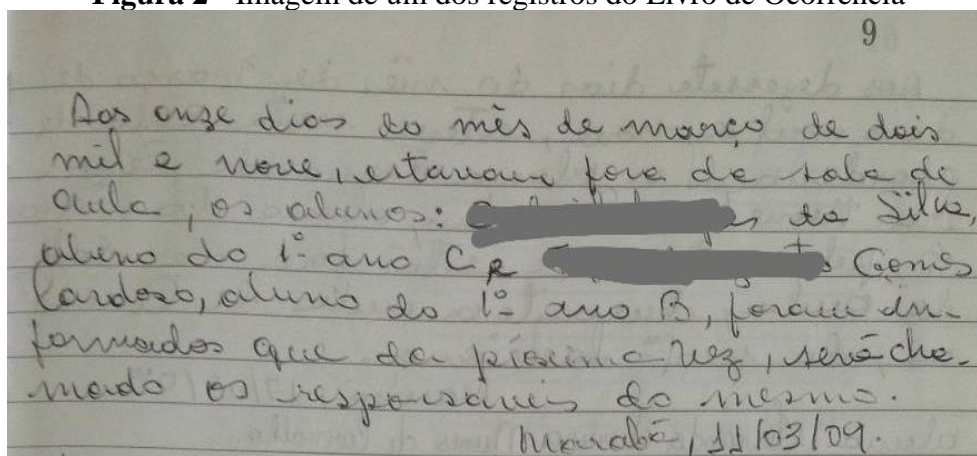 Figura 2 - Imagem de um dos registros do Livro de Ocorrência
9
Aos onze dias do mês de março de dois
mil e nove, estavam fora da sala de
aula, os alunos: da Silva,
aluno do 1º ano C e Gomes
Cardoso, aluno do 1º ano B, foram in-
formados que da próxima vez, será cha-
mado os responsáveis do mesmo.
Marabá, 11/03/09.